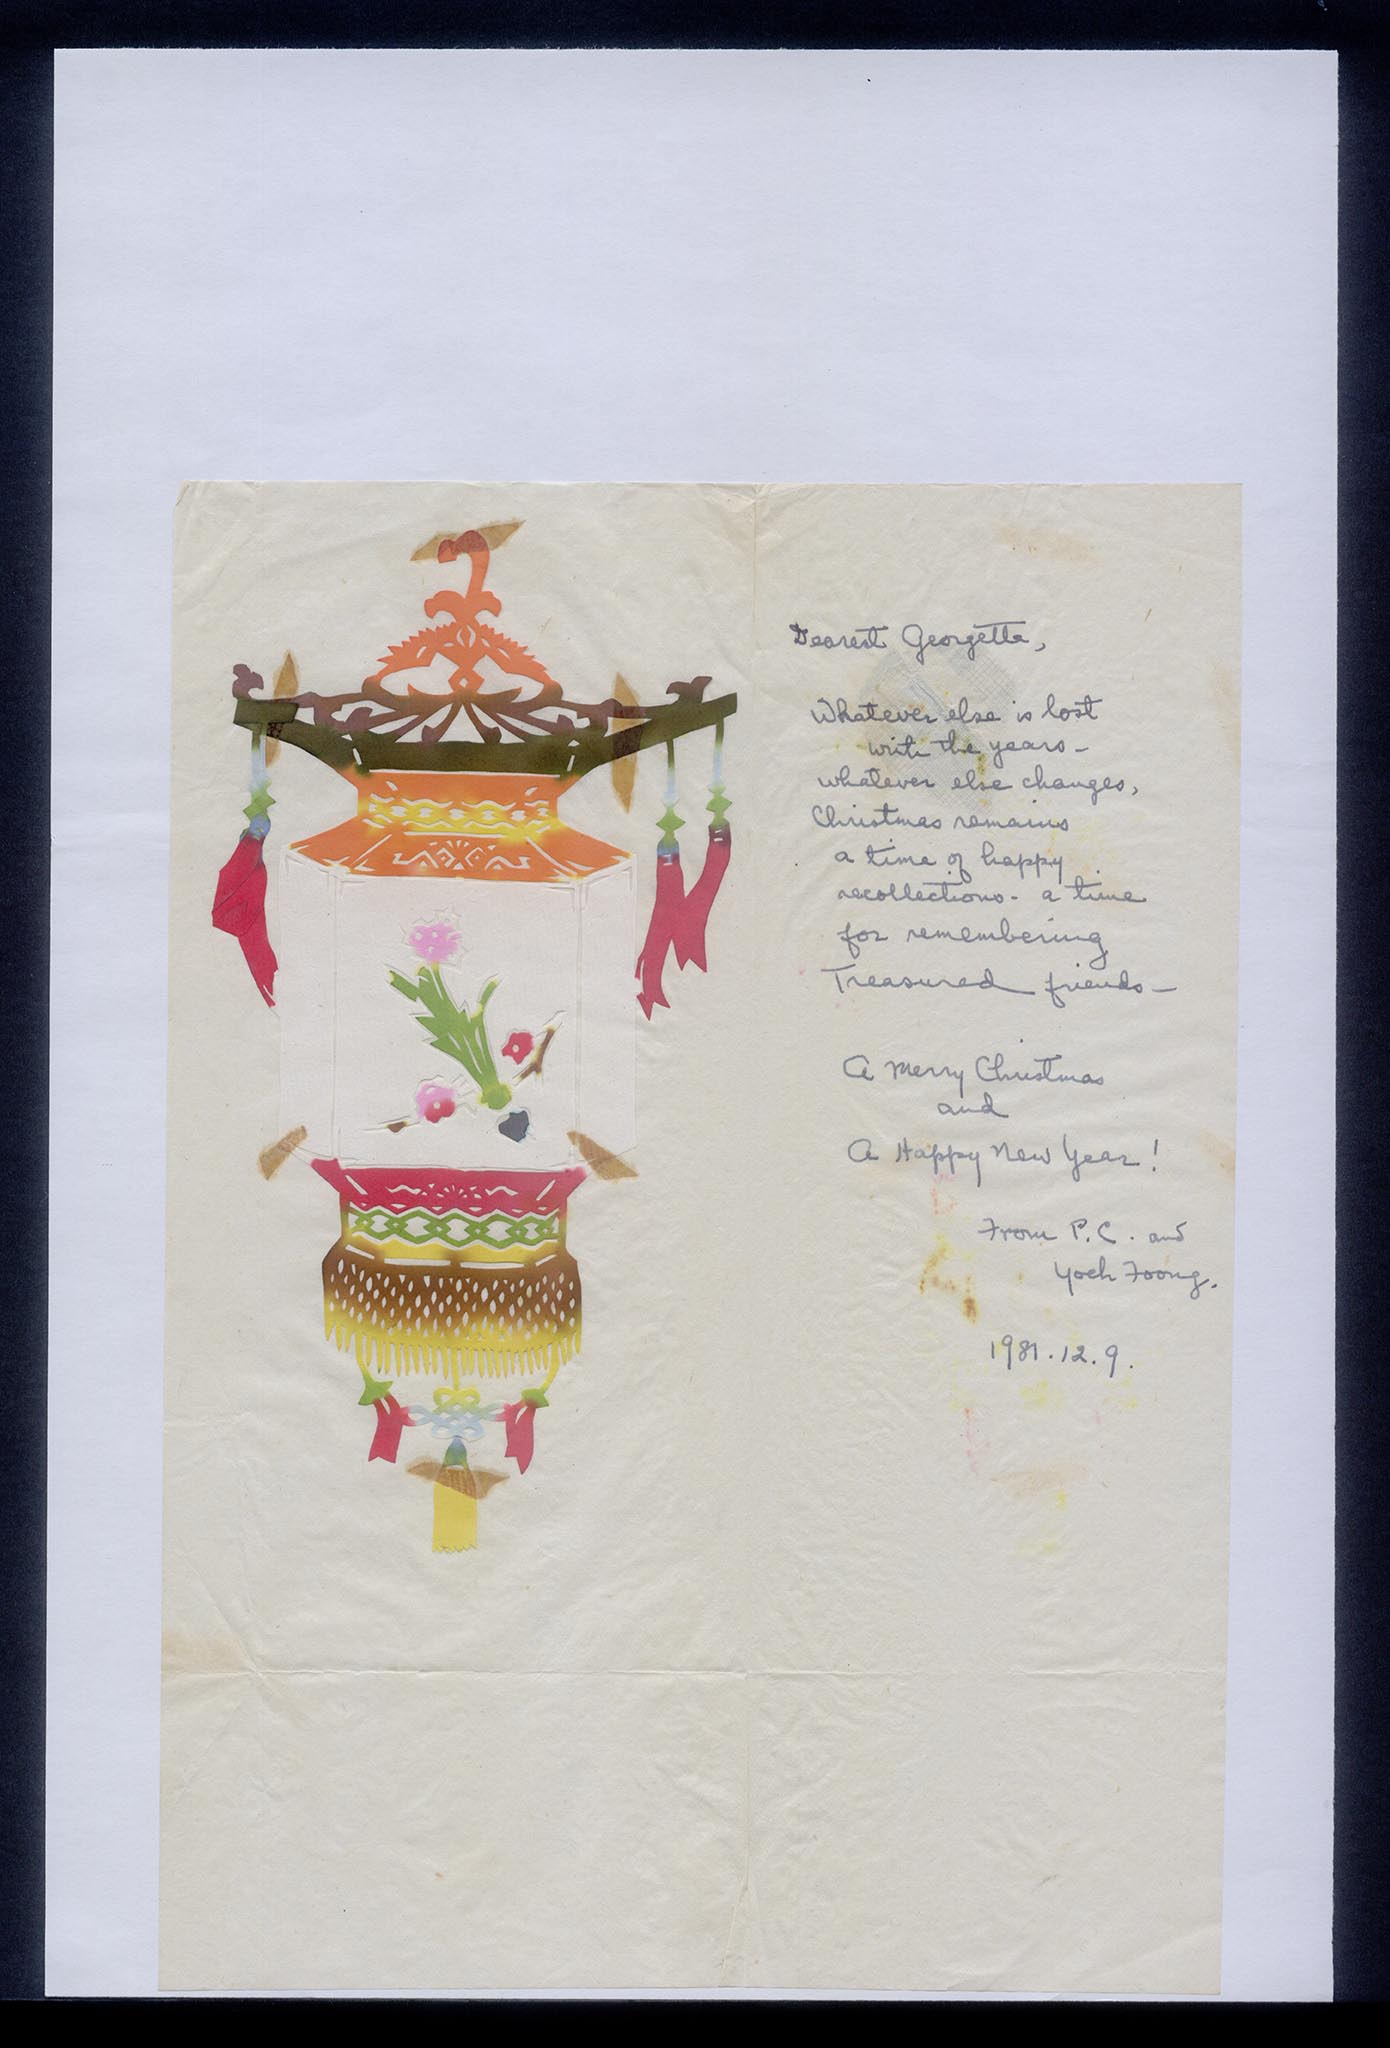 Dearest Georgette,
Whatever else is lost
with the years -
whatever else changes,
Christmas remains
a time of happy
recollections - a time
for remembering
Treasured friends -
A Merry Christmas
and
A Happy New Year!
From P.C. and
Yoek Foong.
1981.12.9.